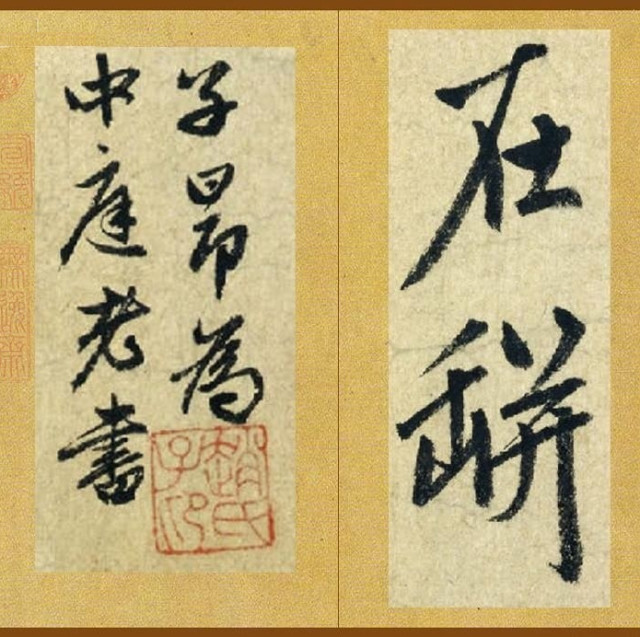 在缾
子昂為
中庭老書
趙氏子昂